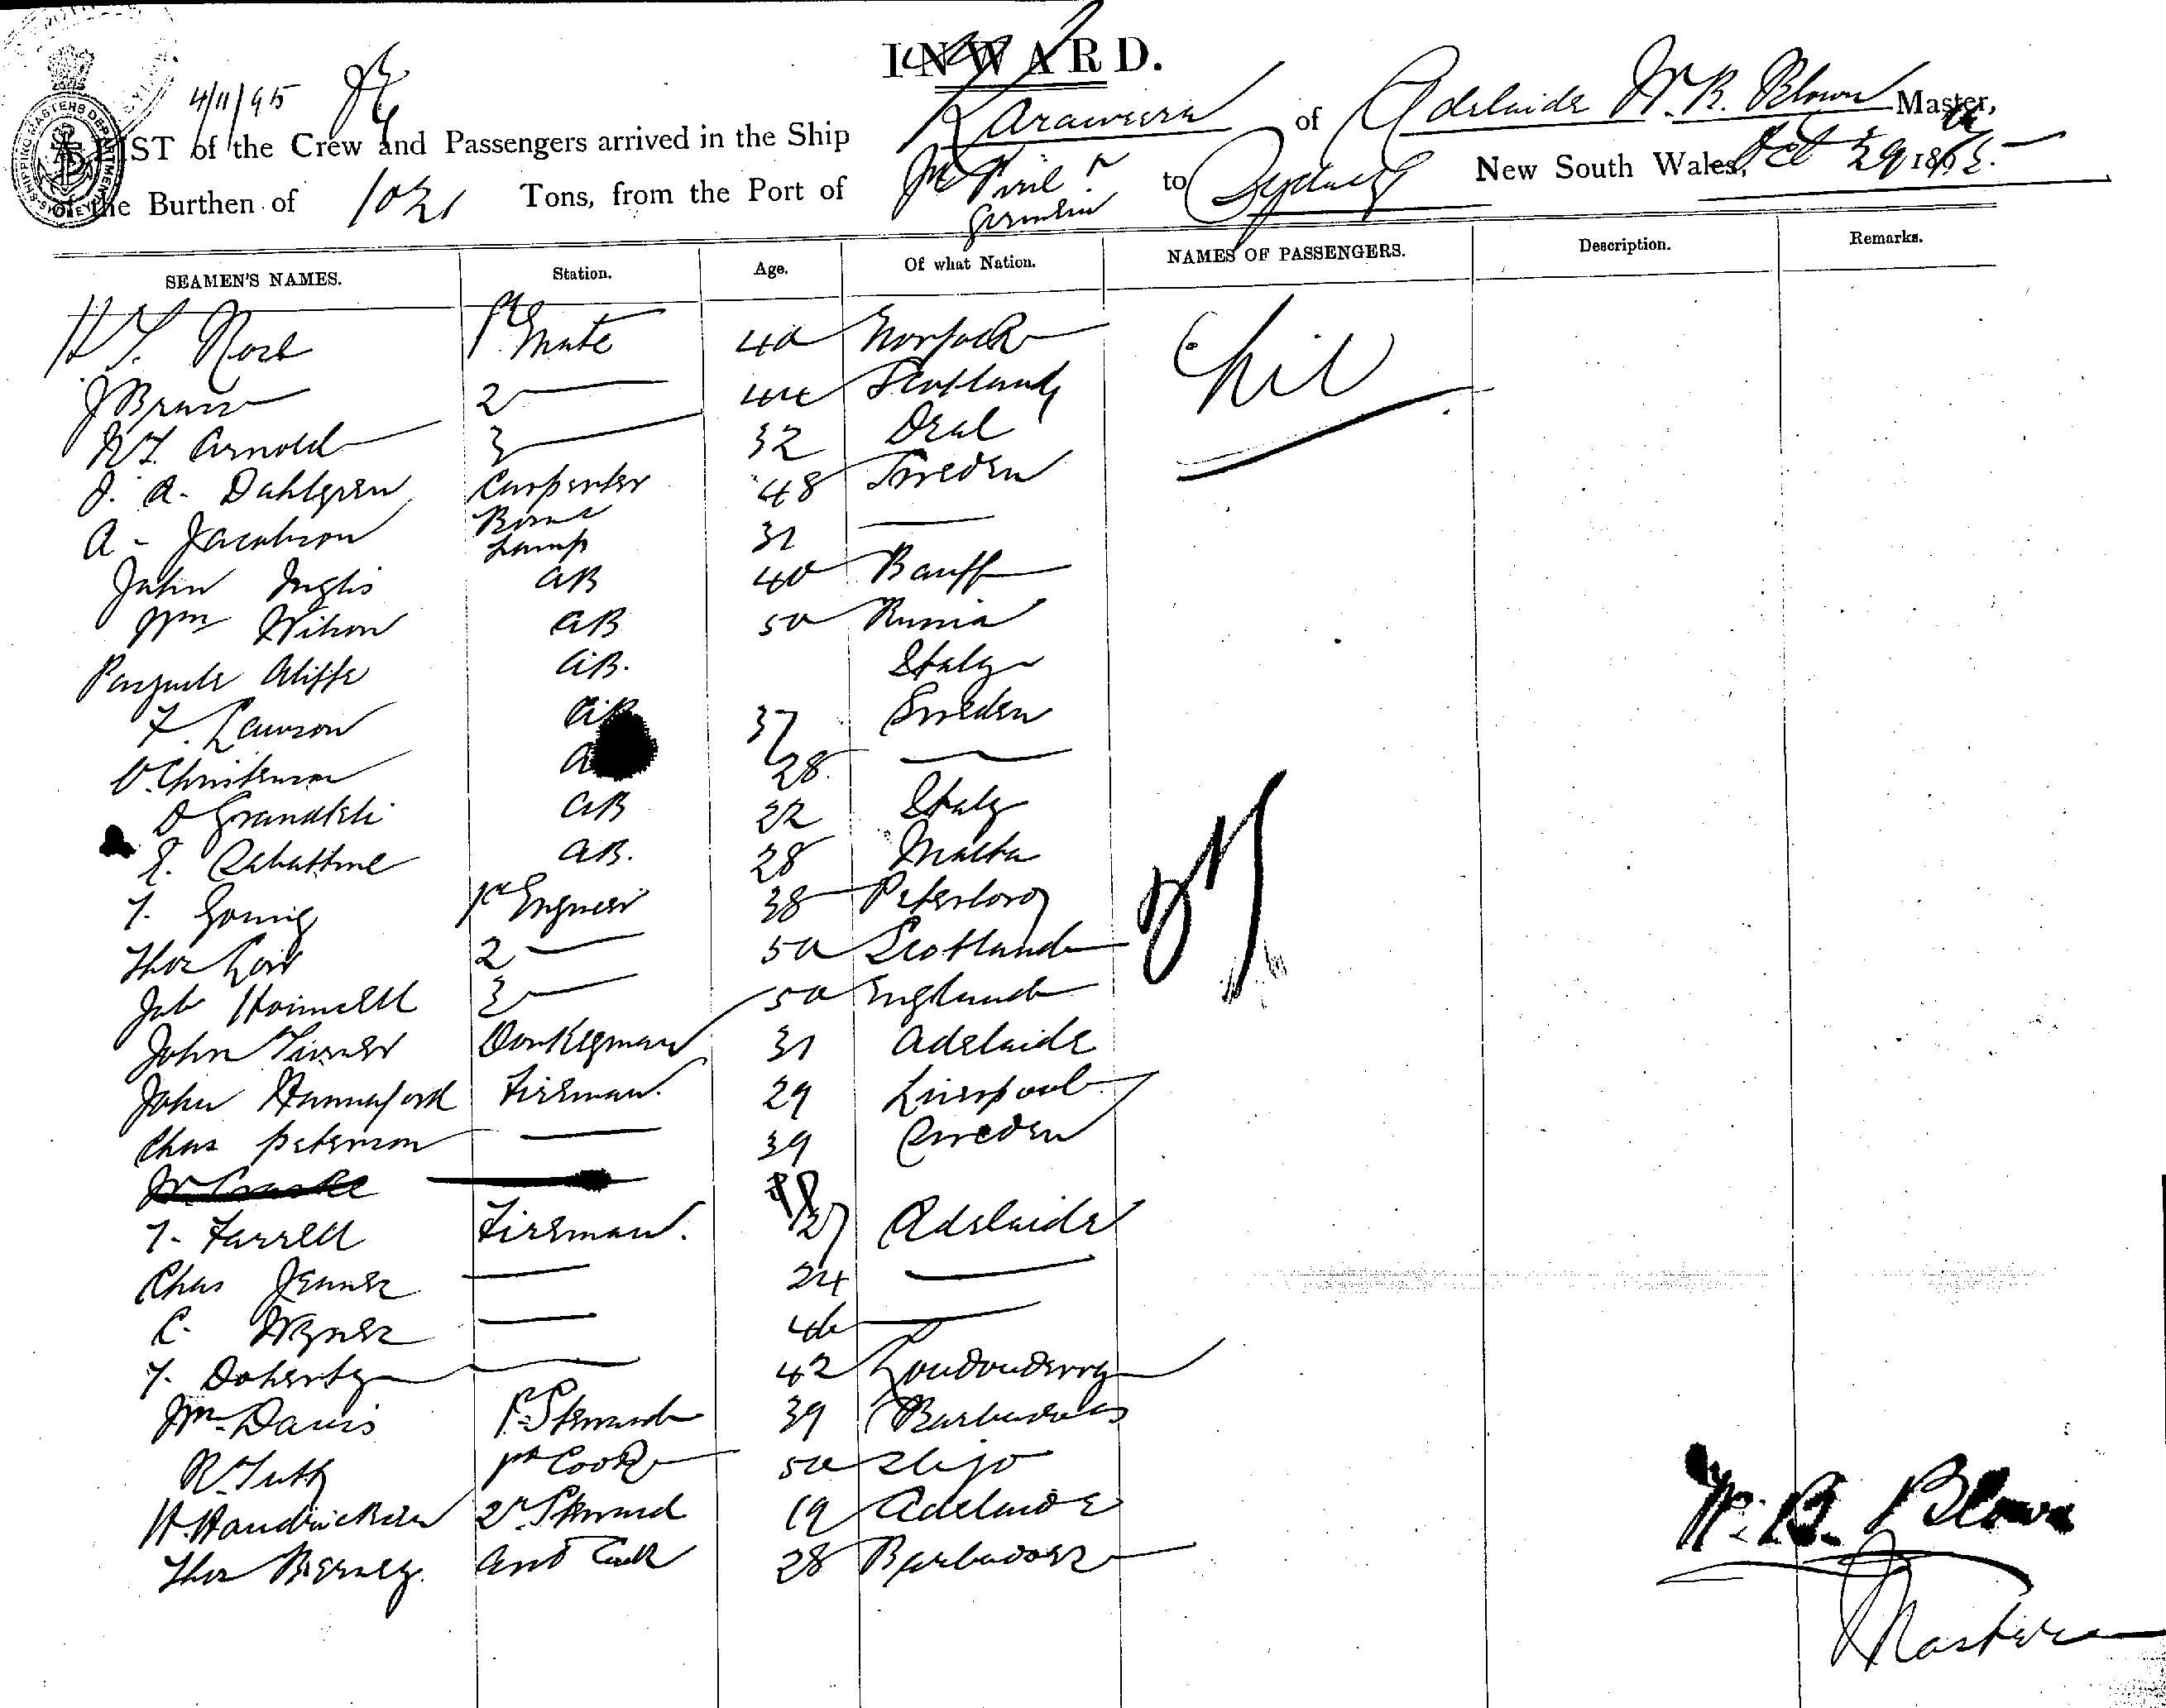 INWARD.
4/11/95
LIST of the Crew and Passengers arrived in the Ship Karaweera of Adelaide W. B. Blown Master,
of the Burthen of 1021 Tons, from the Port of Pt Pirie & Germein to Sydney New South Wales, Oct 29 1895.
SEAMEN'S NAMES. Station. Age. Of what Nation. NAMES OF PASSENGERS. Description. Remarks.
1st Mate 40 Norfolk Nil
J Brown 2 — 44 Scotland
W J. Arnold 3 — 32 Deal
J. A. Dahlgren Carpenter 48 Sweden
A - Jacobson Lamp 31 —
John Inglis AB 40 Banff
Wm Wilson AB 50 Russia
Pasquale AB. Italy
F. Lawson AB 37 Sweden
V. Christenson 28 —
AB 22 Italy
AB. 28 Malta
T. 1st Engineer 38 Peterboro
Thos 2 — 50 Scotland
Job 3 — 50 England
John Turner Donkeyman 31 Adelaide
John Hannaford Fireman. 29 Liverpool
Chas Peterson — 39 Sweden
T. Farrell Fireman. 27 Adelaide
Chas Jenner — 24 —
C. — 46 —
T. Doherty — 42 Londonderry
Wm Davis 1st Steward 39 Barbadoes
R. Tutty 1st Cook 50 Sligo
H. Handrickson 2nd Steward 19 Adelaide
Thos 28 Barbadoes
W. B. Blown
Master